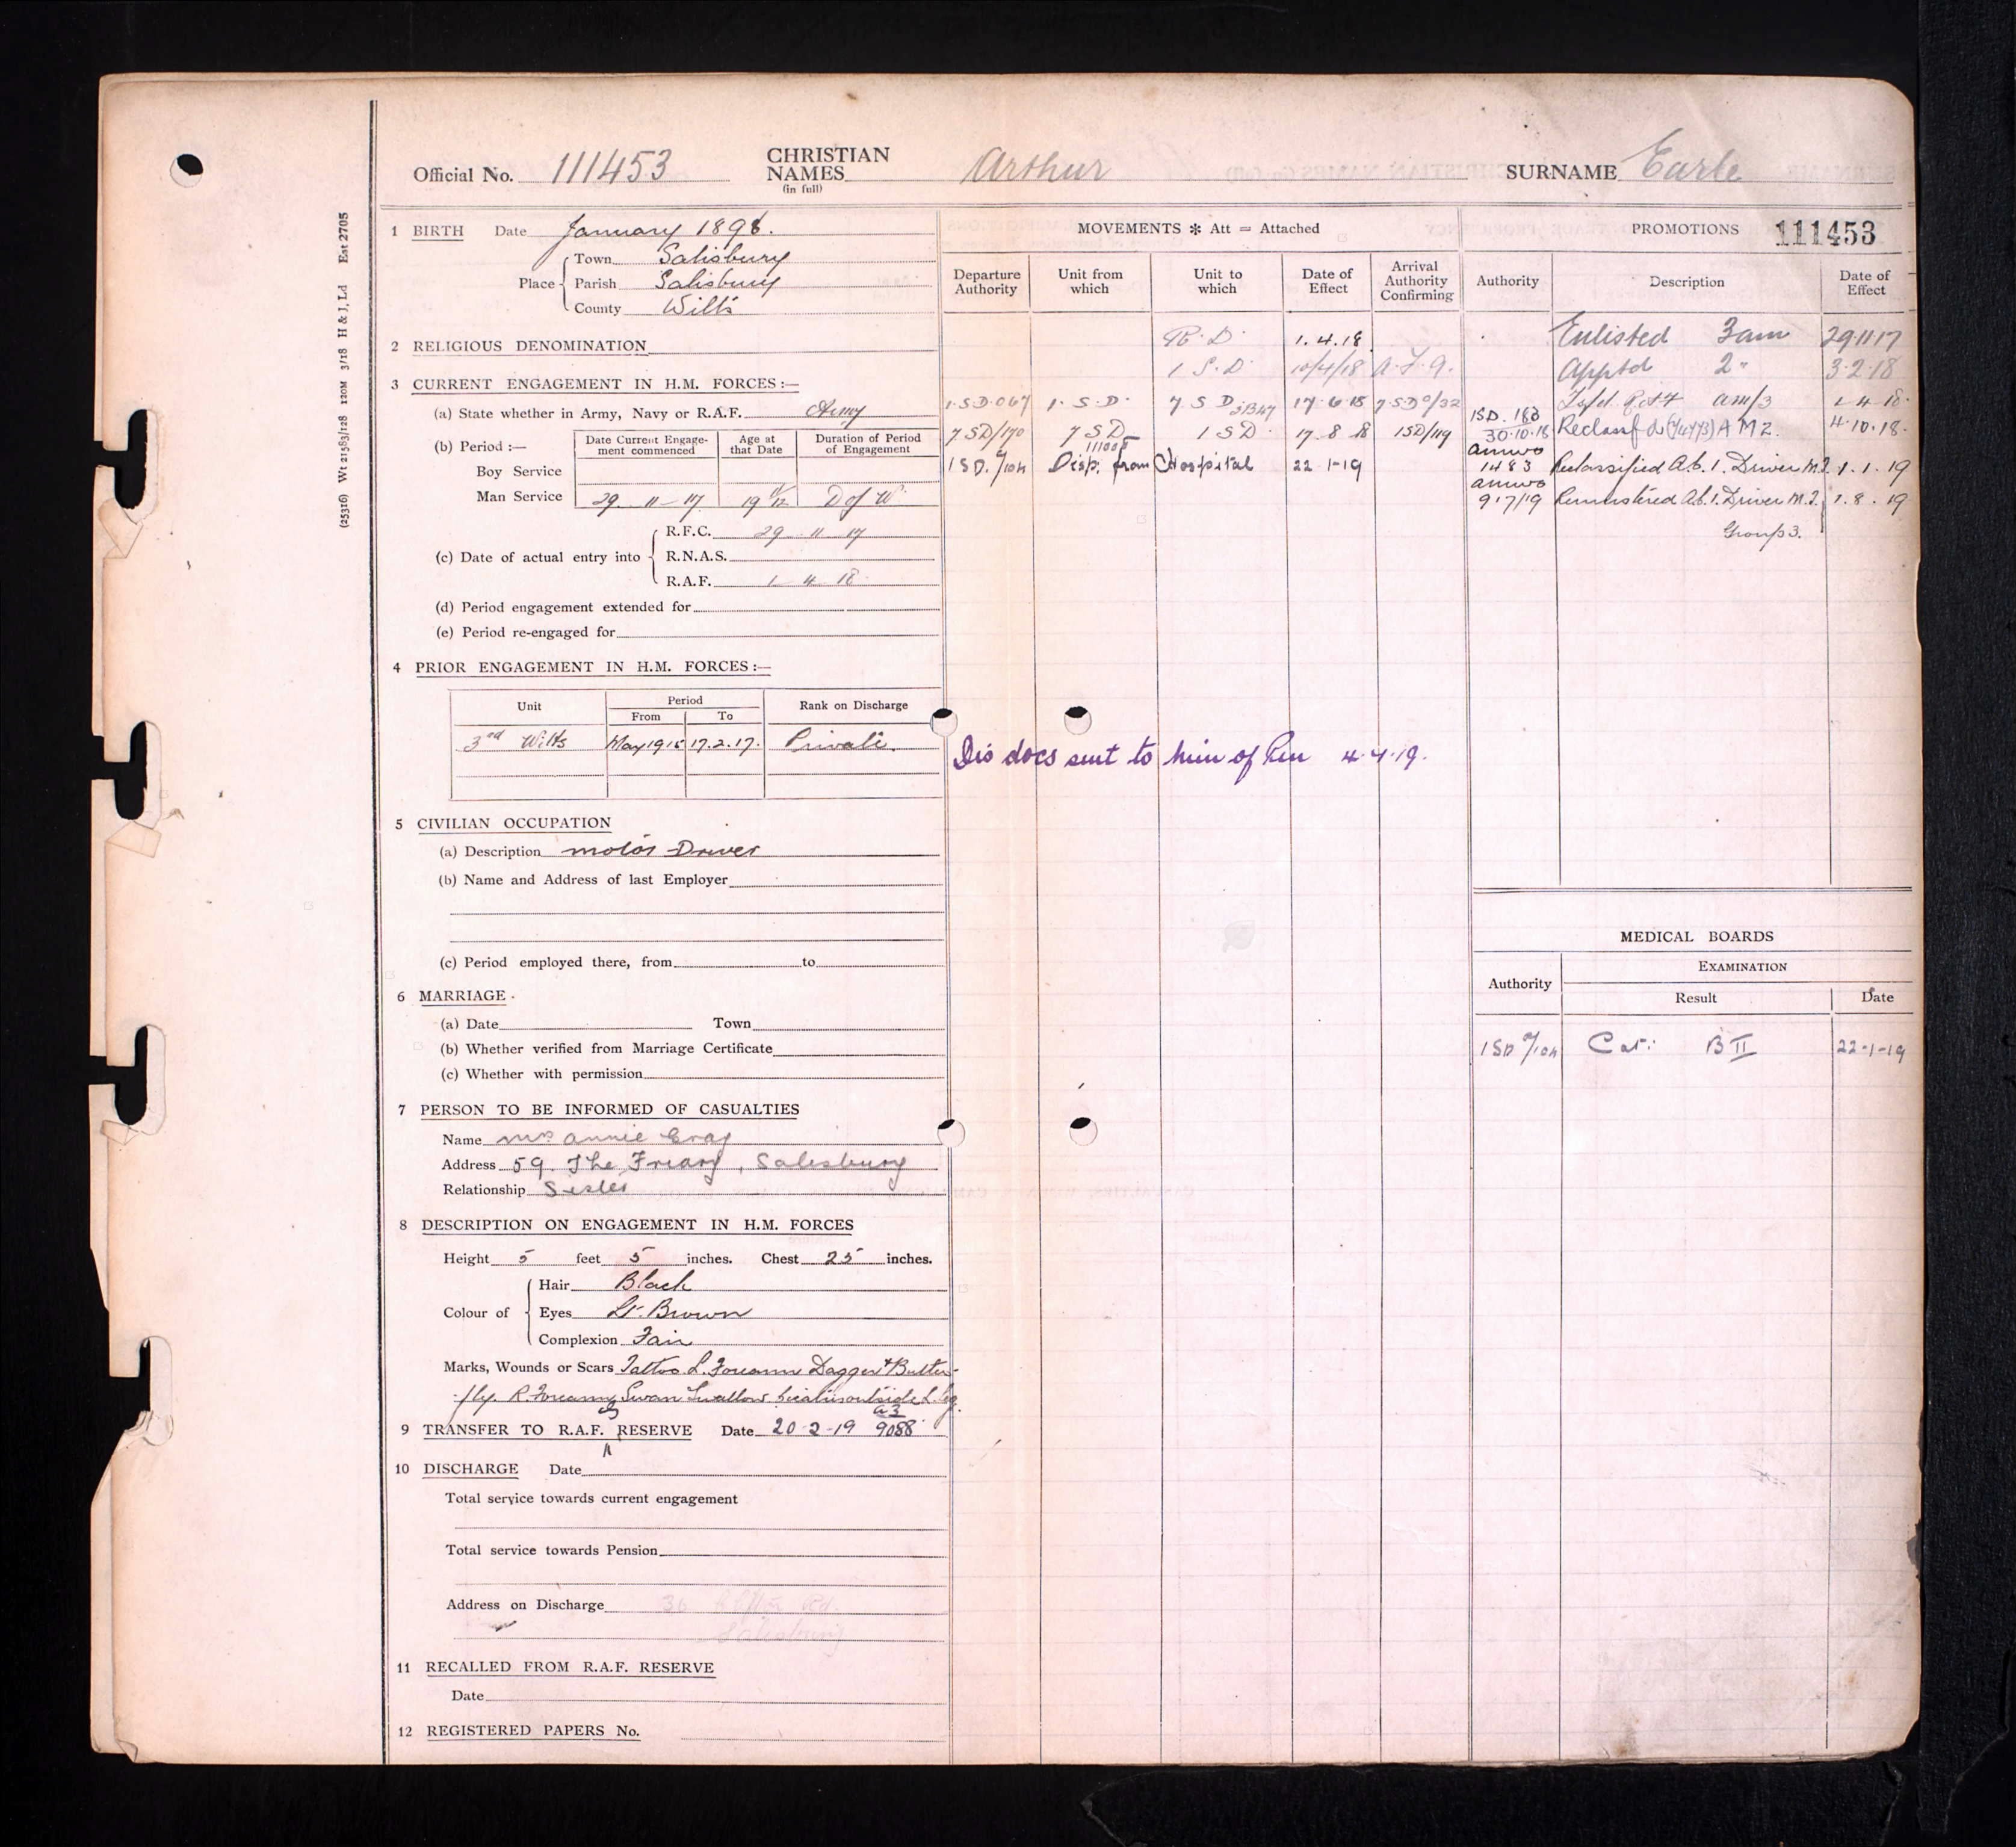 Official No. 111453 CHRISTIAN NAMES (in full) Arthur SURNAME Earle
(25316) Wt 21583/128 120M 3/18 H & J, Ld Est 2705
1 BIRTH Date January 1898.
Place Town Salisbury
Parish Salisbury
County Wilts
2 RELIGIOUS DENOMINATION
3 CURRENT ENGAGEMENT IN H.M. FORCES :—
(a) State whether in Army, Navy or R.A.F. Army
(b) Period :— Date Current Engagement commenced Age at that Date Duration of Period of Engagement
Boy Service
Man Service 29 - 11 - 17 D of W
(c) Date of actual entry into R.F.C. 29 - 11 - 17
R.N.A.S.
R.A.F. 1 - 4 - 18
(d) Period engagement extended for
(e) Period re-engaged for
4 PRIOR ENGAGEMENT IN H.M. FORCES :—
Unit Period From To Rank on Discharge
3rd Wilts 17.2.17. Private.
5 CIVILIAN OCCUPATION
(a) Description motor Driver
(b) Name and Address of last Employer
(c) Period employed there, from to
6 MARRIAGE
(a) Date Town
(b) Whether verified from Marriage Certificate
(c) Whether with permission
7 PERSON TO BE INFORMED OF CASUALTIES
Name Mrs annie Gray
Address 59. The Friary, Salesbury
Relationship Sister
8 DESCRIPTION ON ENGAGEMENT IN H.M. FORCES
Height 5 feet 5 inches. Chest 25 inches.
Colour of Hair Black
Eyes Lt. Brown
Complexion Fair
Marks, Wounds or Scars Tattoo L. Forearm Dagger + Butter-
fly. R. Forearm Swan Swallow outside L. leg.
9 TRANSFER TO R.A.F. RESERVE Date 20-2-19 9088
10 DISCHARGE Date
Total service towards current engagement
Total service towards Pension
Address on Discharge 36 Rd.
Salisbury
11 RECALLED FROM R.A.F. RESERVE
Date
12 REGISTERED PAPERS No.
MOVEMENTS * Att = Attached
Departure Authority Unit from which Unit to which Date of Effect Arrival Authority Confirming
R.D. 1.4.18
1 S.D. 10/4/18
1.S.D. 067 1.S.D. 7 S D 17.6.18
7 SD/170 7 SD 1 SD 17.8.18 1SD/119
1 SD. Disp. from Hospital 22-1-19
Dis docs sent to min of Pen 4.4.19.
PROMOTIONS 111453
Authority Description Date of Effect
Enlisted 3am 29.11.17
Apptd 2" 3.2.18
am/3 1.4.18
1SD. 183 30.10.18 Reclassf A M 2. 4.10.18.
amwo 1483 Reclassified A.C.1. Driver M.T. 1.1.19
amwo 917/19 Remustered A.C.1. Driver M.T. 1.8.19
Group 3.
MEDICAL BOARDS
Authority EXAMINATION
Result Date
Cat: B II 22-1-19